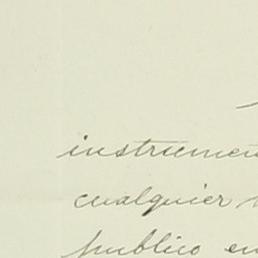 instrumen
cualquier
publico en